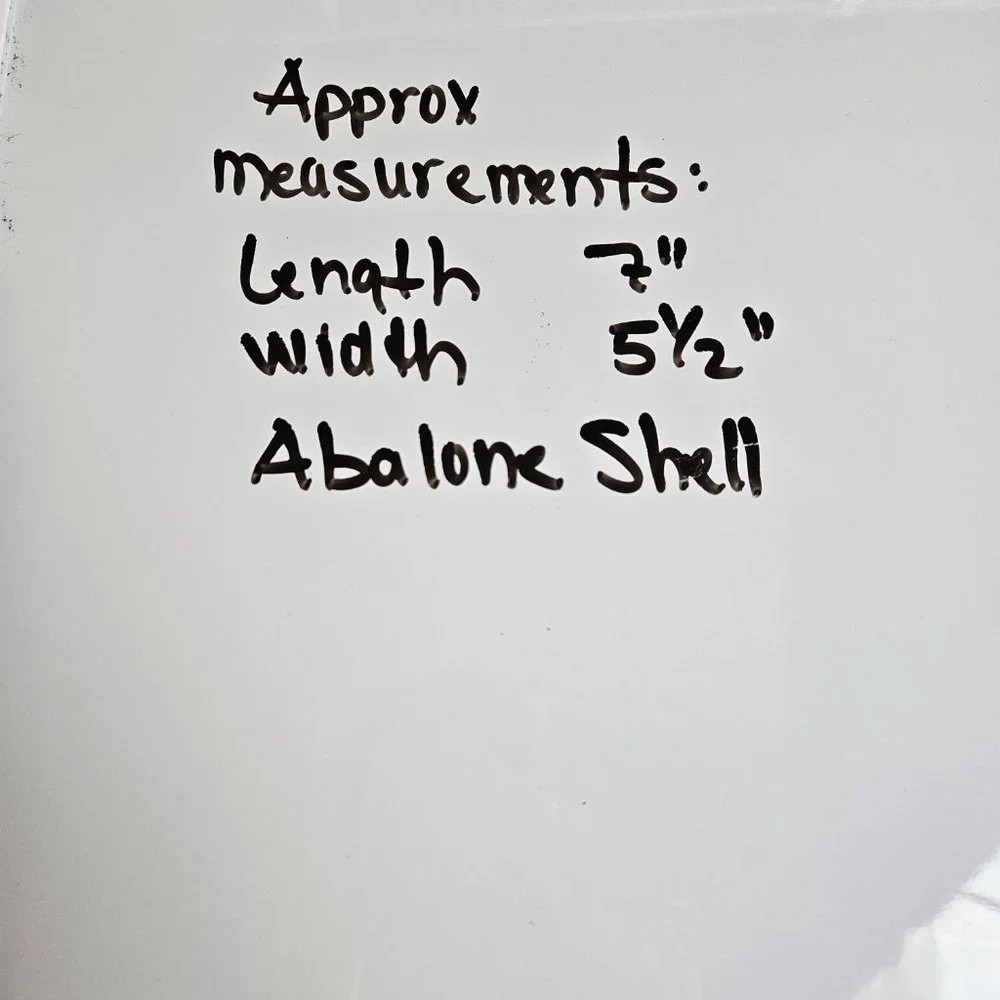 Approx
measurements:
Length 7"
Width 5 1/2"
Abalone Shell